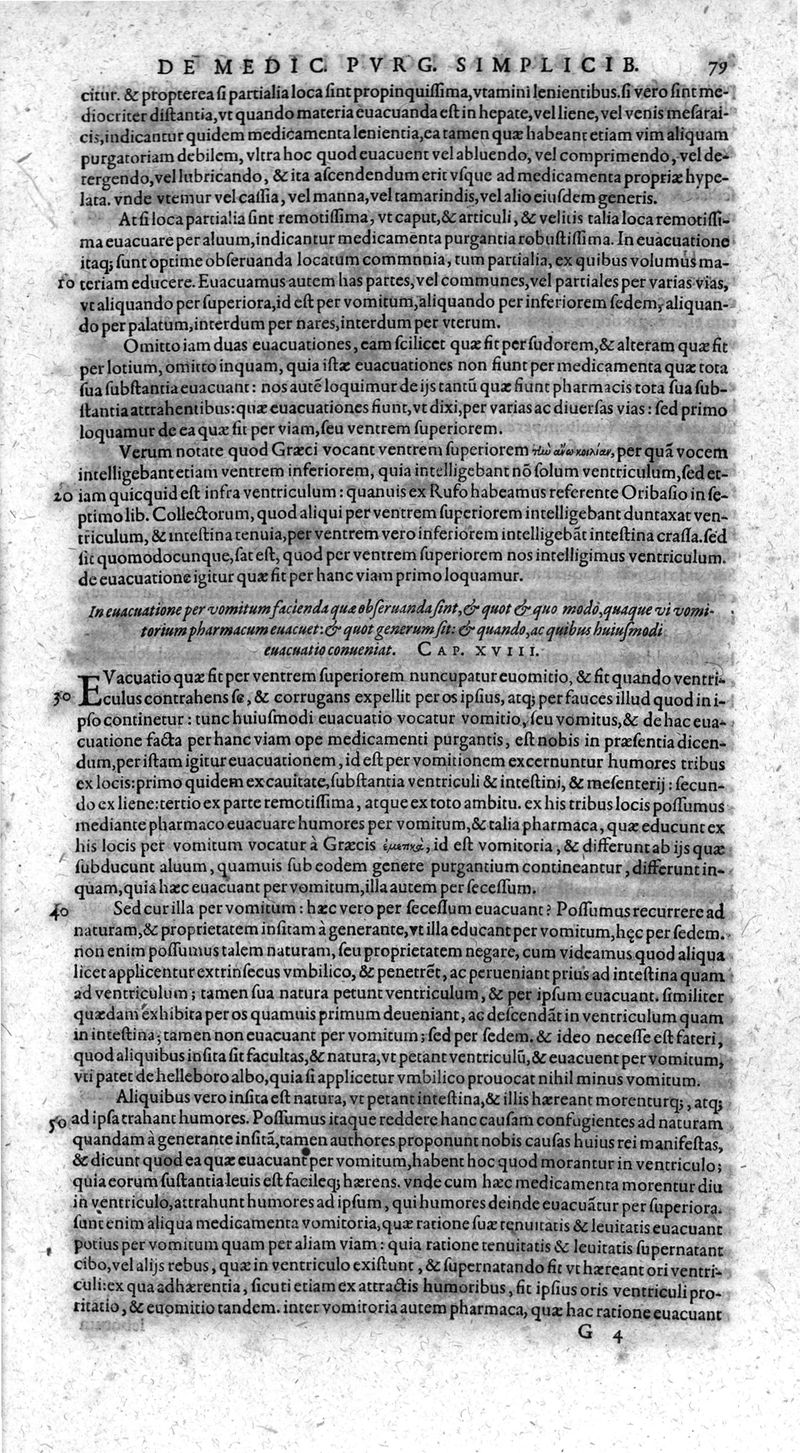 DE MEDIC. PVRG. SIMPLICIB. 79
citur. & propterea ſi partialia loca ſint propinquiſſima, vtamini lenientibus. ſi vero ſint me-
diocriter diſtantia, vt quando materia euacuanda eſt in hepate, vel liene, vel venis meſarai-
cis, indicantur quidem medicamenta lenientia, ea tamen quæ habeant etiam vim aliquam
purgatoriam debilem, vltra hoc quod euacuent vel abluendo, vel comprimendo, vel de-
tergendo, vel lubricando, & ita aſcendendum erit vſque ad medicamenta propriæ hype-
lata. vnde vtemur vel caſſia, vel manna, vel tamarindis, vel alio eiuſdem generis.
At ſi loca partialia ſint remotiſſima, vt caput, & articuli, & velitis talia loca remotiſſi-
ma euacuare per aluum, indicantur medicamenta purgantia robuſtiſſima. In euacuatione
itaq; ſunt optime obſeruanda locatum commnnia, tum partialia, ex quibus volumus ma-
10 teriam educere. Euacuamus autem has partes, vel communes, vel partiales per varias vias,
vt aliquando per ſuperiora, id eſt per vomitum, aliquando per inferiorem ſedem, aliquan-
do per palatum, interdum per nares, interdum per vterum.
Omitto iam duas euacuationes, eam ſcilicet quæ fit per ſudorem, & alteram quæ fit
per lotium, omitto inquam, quia iſtæ euacuationes non fiunt per medicamenta quæ tota
ſua ſubſtantia euacuant: nos autē loquimur de ijs tantū quæ fiunt pharmacis tota ſua ſub-
ſtantia attrahentibus: quæ euacuationes fiunt, vt dixi, per varias ac diuerſas vias: ſed primo
loquamur de ea quæ fit per viam, ſeu ventrem ſuperiorem.
Verum notate quod Græci vocant ventrem ſuperiorem τὴν ἄνω κοιλίαν, per quā vocem
intelligebant etiam ventrem inferiorem, quia intelligebant nō ſolum ventriculum, ſed et-
20 iam quicquid eſt infra ventriculum: quanuis ex Rufo habeamus referente Oribaſio in ſe-
ptimo lib. Collectorum, quod aliqui per ventrem ſuperiorem intelligebant duntaxat ven-
triculum, & inteſtina tenuia, per ventrem vero inferiorem intelligebāt inteſtina craſſa. ſed
ſit quomodocunque, ſat eſt, quod per ventrem ſuperiorem nos intelligimus ventriculum.
de euacuatione igitur quæ fit per hanc viam primo loquamur.
In euacuatione per vomitum facienda quæ obſeruanda ſint, & quot & quo modo, quaque vi vomi-
torium pharmacum euacuet: & quot generum ſit: & quando, ac quibus huiuſmodi
euacuatio conueniat. CAP. XVIII.
EVacuatio quæ fit per ventrem ſuperiorem nuncupatur euomitio, & fit quando ventri-
30 culus contrahens ſe, & corrugans expellit per os ipſius, atq; per fauces illud quod in i-
pſo continetur: tunc huiuſmodi euacuatio vocatur vomitio, ſeu vomitus, & de hac eua-
cuatione facta per hanc viam ope medicamenti purgantis, eſt nobis in præſentia dicen-
dum, per iſtam igitur euacuationem, id eſt per vomitionem excernuntur humores tribus
ex locis: primo quidem ex cauitate, ſubſtantia ventriculi & inteſtini, & meſenterij: ſecun-
do ex liene: tertio ex parte remotiſſima, atque ex toto ambitu. ex his tribus locis poſſumus
mediante pharmaco euacuare humores per vomitum, & talia pharmaca, quæ educunt ex
his locis per vomitum vocatur à Græcis ἐμετικὰ, id eſt vomitoria, & differunt ab ijs quæ
ſubducunt aluum, quamuis ſub eodem genere purgantium contineantur, differunt in-
quam, quia hæc euacuant per vomitum, illa autem per ſeceſſum.
40 Sed cur illa per vomitum: hæc vero per ſeceſſum euacuant? Poſſumus recurrere ad
naturam, & proprietatem inſitam à generante, vt illa educant per vomitum, hęc per ſedem.
non enim poſſumus talem naturam, ſeu proprietatem negare, cum videamus quod aliqua
licet applicentur extrinſecus vmbilico, & penetrēt, ac perueniant prius ad inteſtina quam
ad ventriculum; tamen ſua natura petunt ventriculum, & per ipſum euacuant. ſimiliter
quædam exhibita per os quamuis primum deueniant, ac deſcendāt in ventriculum quam
in inteſtina; tamen non euacuant per vomitum; ſed per ſedem. & ideo neceſſe eſt fateri,
quod aliquibus inſita ſit facultas, & natura, vt petant ventriculū, & euacuent per vomitum,
vti patet de helleboro albo, quia ſi applicetur vmbilico prouocat nihil minus vomitum.
Aliquibus vero inſita eſt natura, vt petant inteſtina, & illis hæreant morenturq;, atq;
50 ad ipſa trahant humores. Poſſumus itaque reddere hanc cauſam confugientes ad naturam
quandam à generante inſitā, tamen authores proponunt nobis cauſas huius rei manifeſtas,
& dicunt quod ea quæ euacuant per vomitum, habent hoc quod morantur in ventriculo;
quia eorum ſuſtantia leuis eſt facileq; hærens. vnde cum hæc medicamenta morentur diu
in ventriculo, attrahunt humores ad ipſum, qui humores deinde euacuātur per ſuperiora.
ſunt enim aliqua medicamenta vomitoria, quæ ratione ſuæ tenuitatis & leuitatis euacuant
potius per vomitum quam per aliam viam: quia ratione tenuitatis & leuitatis ſupernatant
cibo, vel alijs rebus, quæ in ventriculo exiſtunt, & ſupernatando fit vt hæreant ori ventri-
culi: ex qua adhærentia, ſicuti etiam ex attractis humoribus, fit ipſius oris ventriculi pro-
ritatio, & euomitio tandem. inter vomitoria autem pharmaca, quæ hac ratione euacuant
G 4